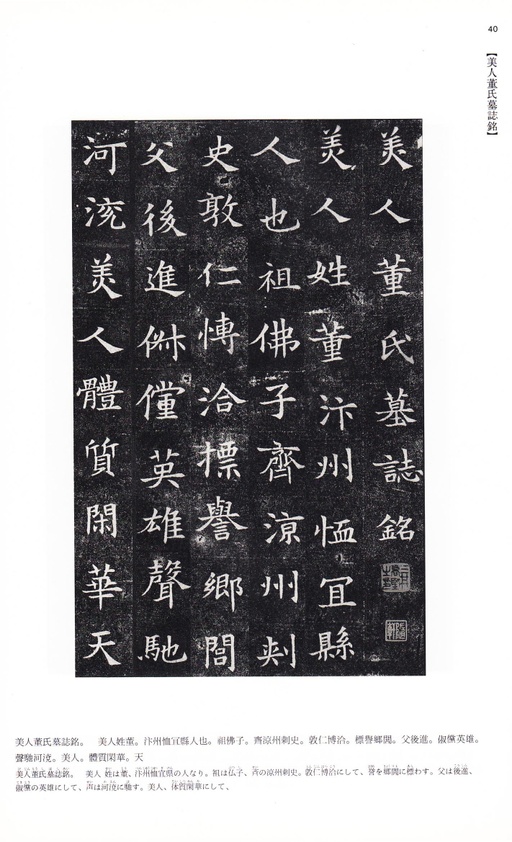 40
【美人董氏墓誌銘】
美人董氏墓誌銘
美人姓董汴州恤冝縣
人也祖佛子齊涼州刺
史敦仁愽洽摽譽鄉閭
父後進俶儻英雄聲馳
河渷美人體質閑華天
美人董氏墓誌銘。　美人姓董。汴州恤冝縣人也。祖佛子。齊涼州刺史。敦仁博洽。標譽鄉閭。父後進。俶儻英雄。
聲馳河渷。美人。體質閑華。天
美人董氏墓誌銘。　美人 姓は董、汴州恤冝県の人なり。祖は仏子、斉の涼州刺史。敦仁博洽にして、誉を郷閭に標わす。父は後進、
俶儻の英雄にして、声は河渷に馳す。美人、体質閑華にして、